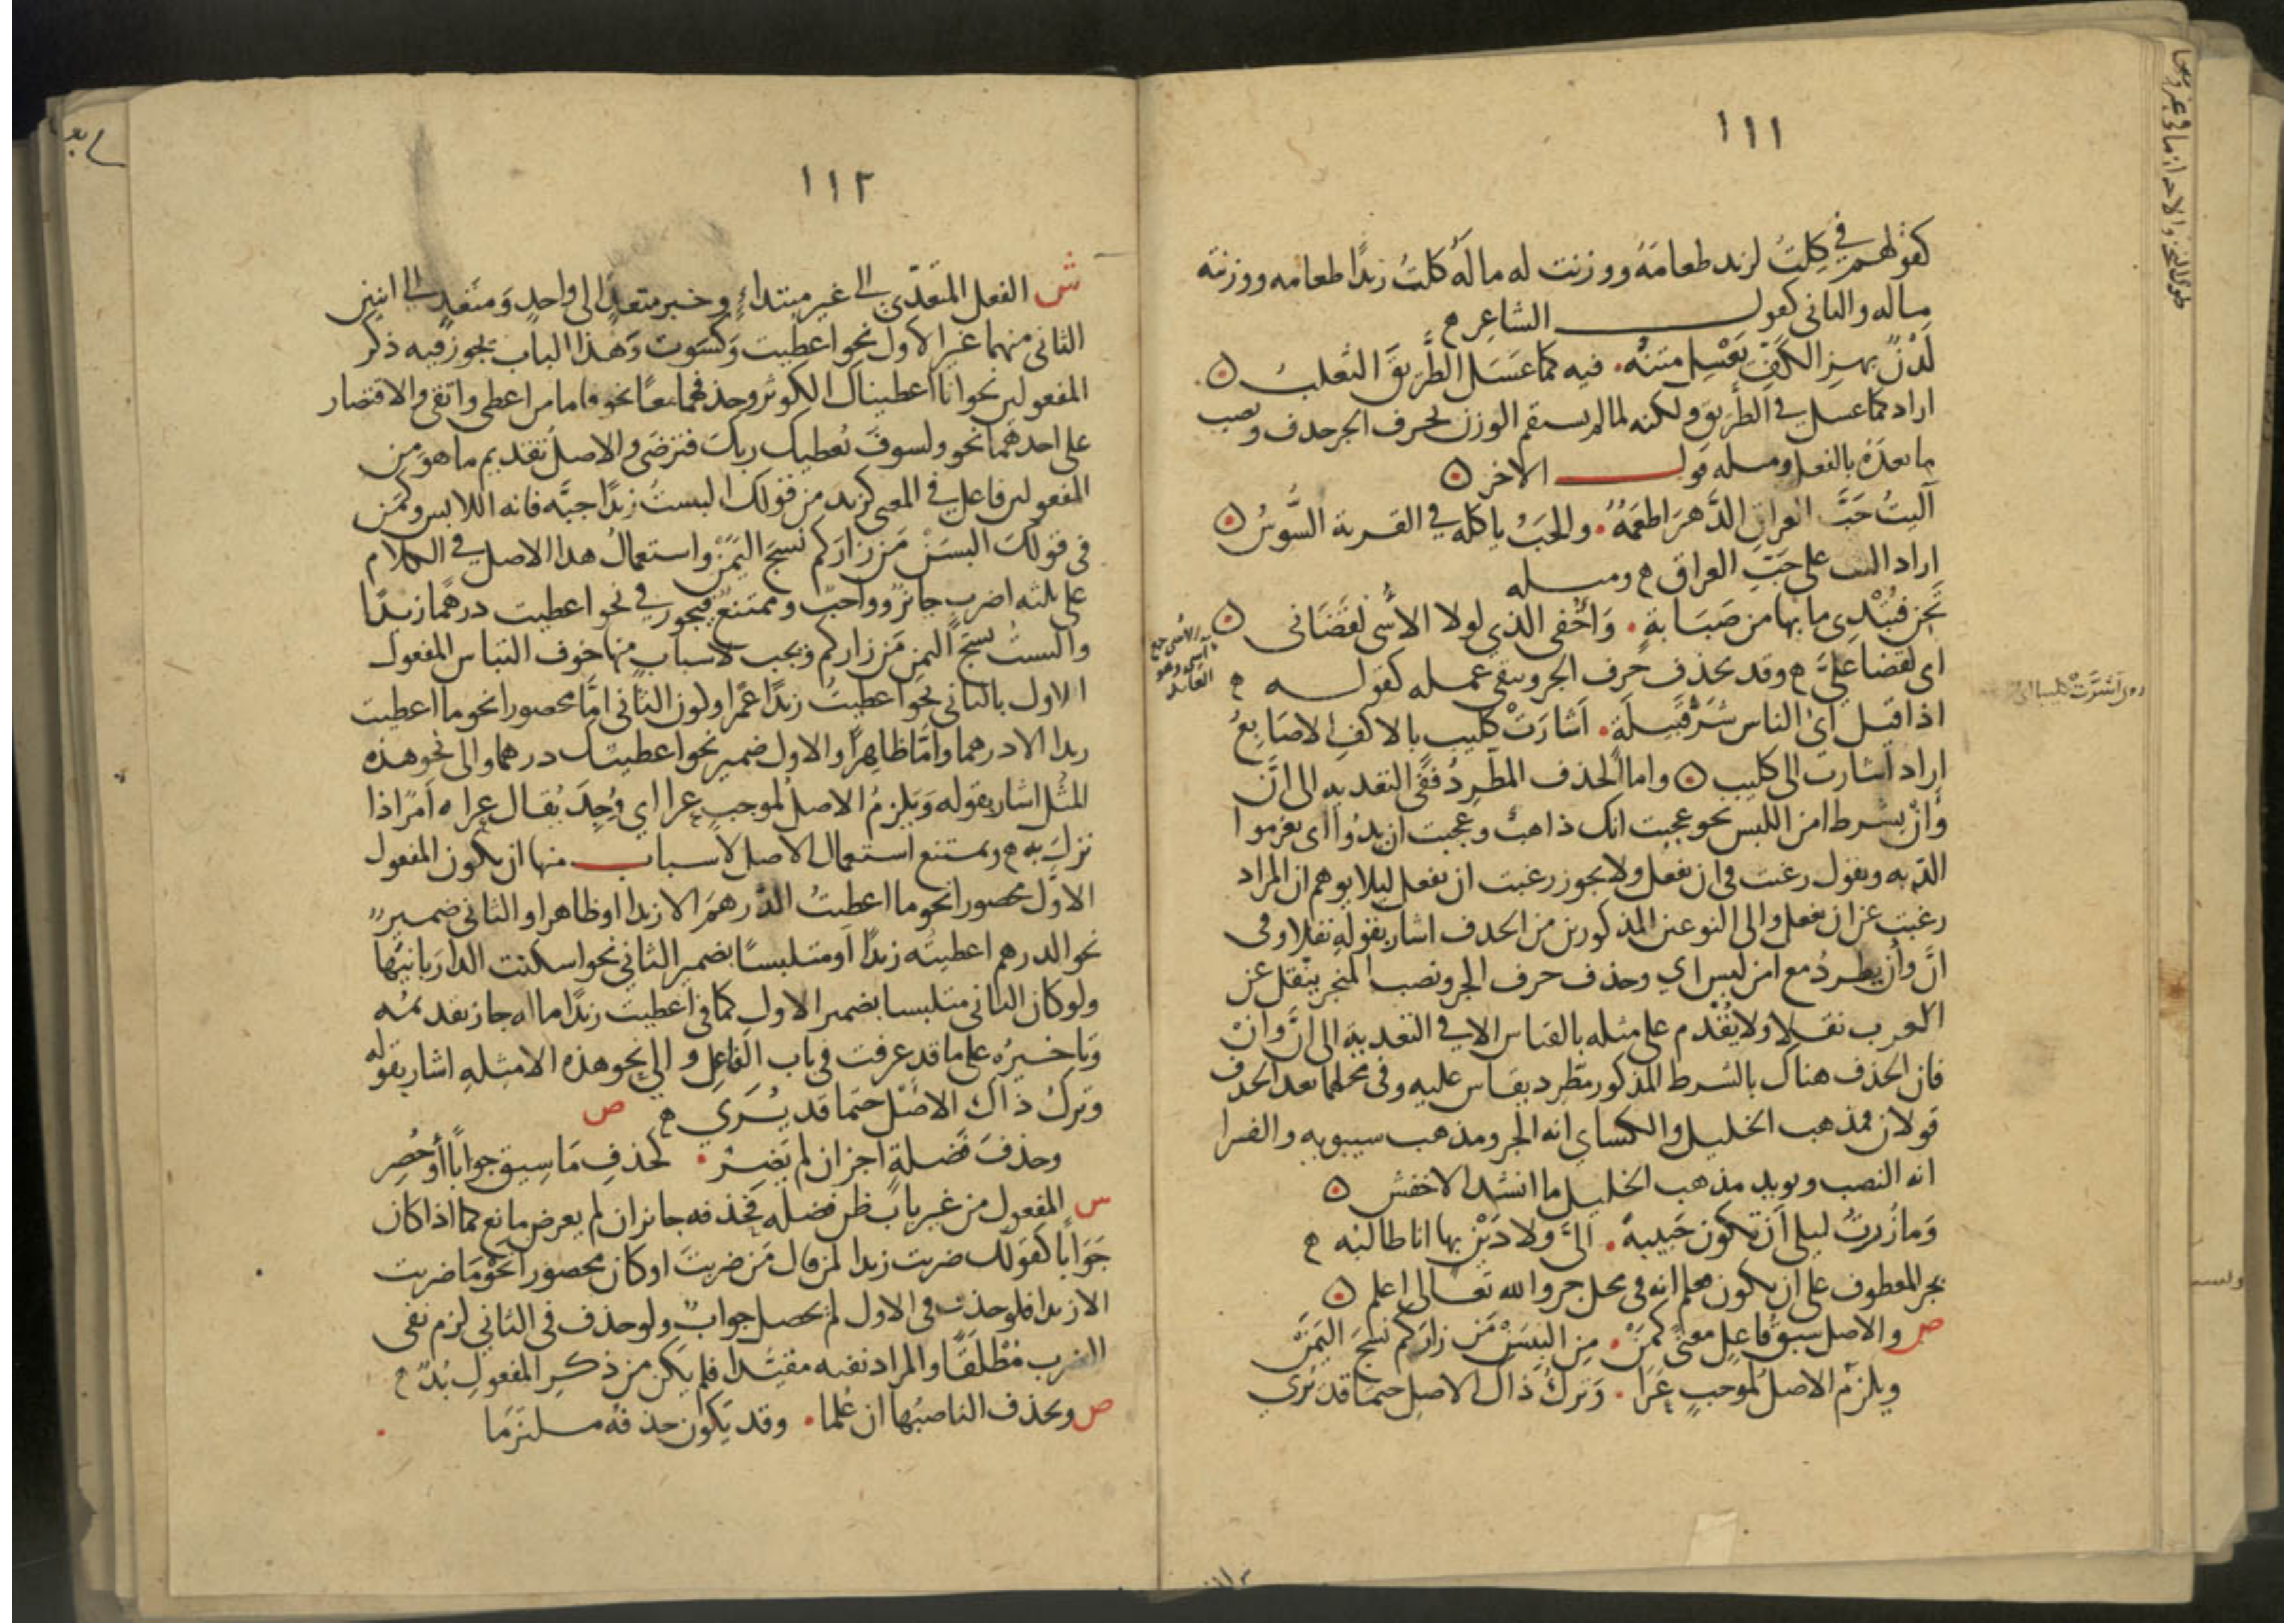 ١١١
كقولهم في كِلتُ لزيد طعامَهُ ووزنت له مالَهُ كلتُ زيدًا طعامه ووزنته
ماله والثاني كقول الشاعر
لَدْنٌ بهزِ الكَفِّ يَعْسِل متنُه فيه كما عَسَل الطَّرِيقَ الثعلبُ
اراد كما عسل في الطريق ولكنه لما لم يستقم الوزن بحرف الجر حذف ونصب
ما بعده بالفعل ومثله قول الاخر
آليتُ حَبَّ العراقِ الدَّهرَ اطعَمُهُ والحَبُّ ياكله في القرية السُّوسُ
اراد اليت على حَبِّ العراق ومثله
تَحِن فتُبْدِي ما بها من صَبَابةٍ وَاُخْفي الذي لولا الاُسى لقَضَانى
اي لقضا عليَّ وقد يحذف حرف الجر ويبقى عمله كقوله
اذا قيل ايُّ الناس شرُّ قَبيلَةٍ اشارَتْ كليبٍ بالاكفِ الاصَابِعُ
اراد اشارت الى كليب واما الحذف المطّرِدُ ففي التعديه الى انَّ
وأنْ بشرط امن اللبس نحو عجبت انك ذاهبٌ وعجبت ان يدُوا اي يغرموا
الديه وتقول رغبت في ان تفعل ولا يجوز رغبت ان تفعل ليلا يوهم ان المراد
رغبت عن ان تفعل والى النوعين المذكورين من الحذف اشار بقوله نقلا وفى
انَّ وأن يطردُ مع امن لبس اي وحذف حرف الجر ونصب المنجر ينقل عن
العرب نقلا ولا يُقْدم على مثله بالقياس الا في التعديه الى انَّ وانْ
فان الحذف هناك بالشرط المذكور مطّرد يقاس عليه وفى محلهما بعد الحذف
قولان فمذهب الخليل والكساي انه الجر ومذهب سيبويه والفرا
انه النصب ويويد مذهب الخليل ما انشد الاخفش
وَما زُرتُ ليلى اَن تكون حَبيبةً الىَّ ولا دَيْنٍ بها انا طالبُه
بجر المعطوف على ان يكون فعلم انه في محل جر والله تعالى اعلم
ص والاصل سبقُ فاعِلٍ معنىً كمَنْ مِن البِسَنْ مَن زارَكم نسجَ اليَمَنْ
ويلزمُ الاصلُ لموجبٍ عَرَا وَتركُ ذاك الاصلِ حتمًا قد يُرَي
الاُسى جمع
اسى وهو
١١٢
ش الفعل المتعدّي الى غير مبتداءٍ وخبر متعدٍ الى واحدٍ وَمتَعدٍ الى اثنين
الثاني منهما غير الاول نحو اعطيت وَكسَوت وَهذا الباب يجوز فيه ذكر
المفعولين نحو انا اعطيناك الكوثر وحذفهما معًا نحو فاما من اعطى واتقى والاقتصار
على احدهما نحو ولسوفَ يُعطيك ربك فترضَى والاصل تقديم ما هو من
المفعولين فاعل في المعنى كزيد من قولك البستُ زيدًا جبَّه فانه اللابس وكمَن
فى قولكَ البسَنْ مَن زارَكم نسجَ اليَمَنْ واستعمالُ هذا الاصل في الكلام
على ثلثه اضربٍ جائزٌ وواجبٌ وممتنعٌ فيجوز في نحو اعطيت درهمًا زيدًا
والبستُ نسجَ اليمنِ مَن زاركم ويجب لاسبابٍ منها خوف التباس المفعول
الاول بالثاني نحو اعطيتُ زيدًا عمرًا ولون الثاني امَّا محصورا نحو ما اعطيت
زيدا الا درهما وامَّا ظاهرًا والاول ضمير نحو اعطيتك درهما والى نحو هذه
المُثُل اشار بقوله وَيَلزمُ الاصلُ لموجبٍ عرا اي وُجِدَ يُقال عراه اَمرٌ اذا
نزل به ويمتنع استعمال الاصل لاسباب منها ان يكون المفعول
الاوّل محصورا نحو ما اعطيتُ الدَّرهمَ الا زيدا او ظاهرا والثاني ضمير
نحو الدرهم اعطيتُه زيدًا اَو متلبسًا بضمير الثاني نحو اسكنت الدارَ بانيَها
ولو كان الثاني متلبسا بضمير الاول كما في اعطيت زيدًا ماله جاز تقديمُه
وَتاخيرُه على ما قد عرفت في باب الفاعِل والى نحو هذه الامثلهِ اشار بقوله
وَتركُ ذاكَ الاصْل حتمًا قد يُرَي ص
وحذفَ فَضلةٍ اجز ان لم يَضِرْ كحذفِ مَا سِيق جوابًا أو حُصِر
س المفعول من غير باب ظن فضله فحذفه جايز ان لم يعرض مانع كما اذا كان
جَوابًا كقولك ضربت زيدا لمن قال مَن ضربتَ او كان محصورا نحْوَ مَا ضربت
الا زيدا فلو حذف في الاول لم يحصل جوابٌ ولو حذف في الثاني لزم نفى
الضرب مُطْلَقًا والمراد نفيه مقيَّدا فلم يكن من ذكر المفعول بُدّ
ص ويحذف الناصبُها ان عُلما وقد يَكون حذفُه ملتزَما